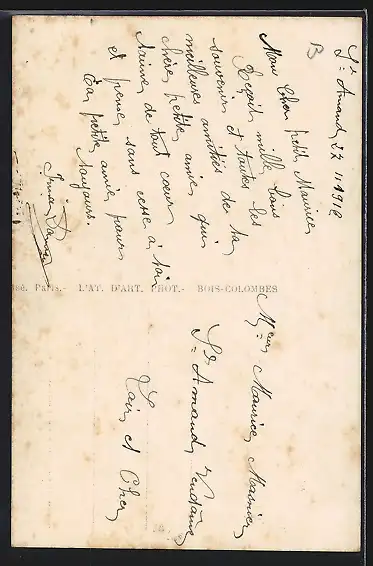 St Amand, 22 11 1912
Mon Cher petit Maurice
Reçois mille bons
souvenirs et toutes les
meilleures amitiés de ta
chère petite amie qui
t'aime de tout coeur
et pense sans cesse à toi
Ta petite amie pour
toujours.
Irma
Paris.- L'AT. D'ART. PHOT.- BOIS-COLOMBES
Mr Maurice Marnier
St Amand Vendôme
Loir et Cher